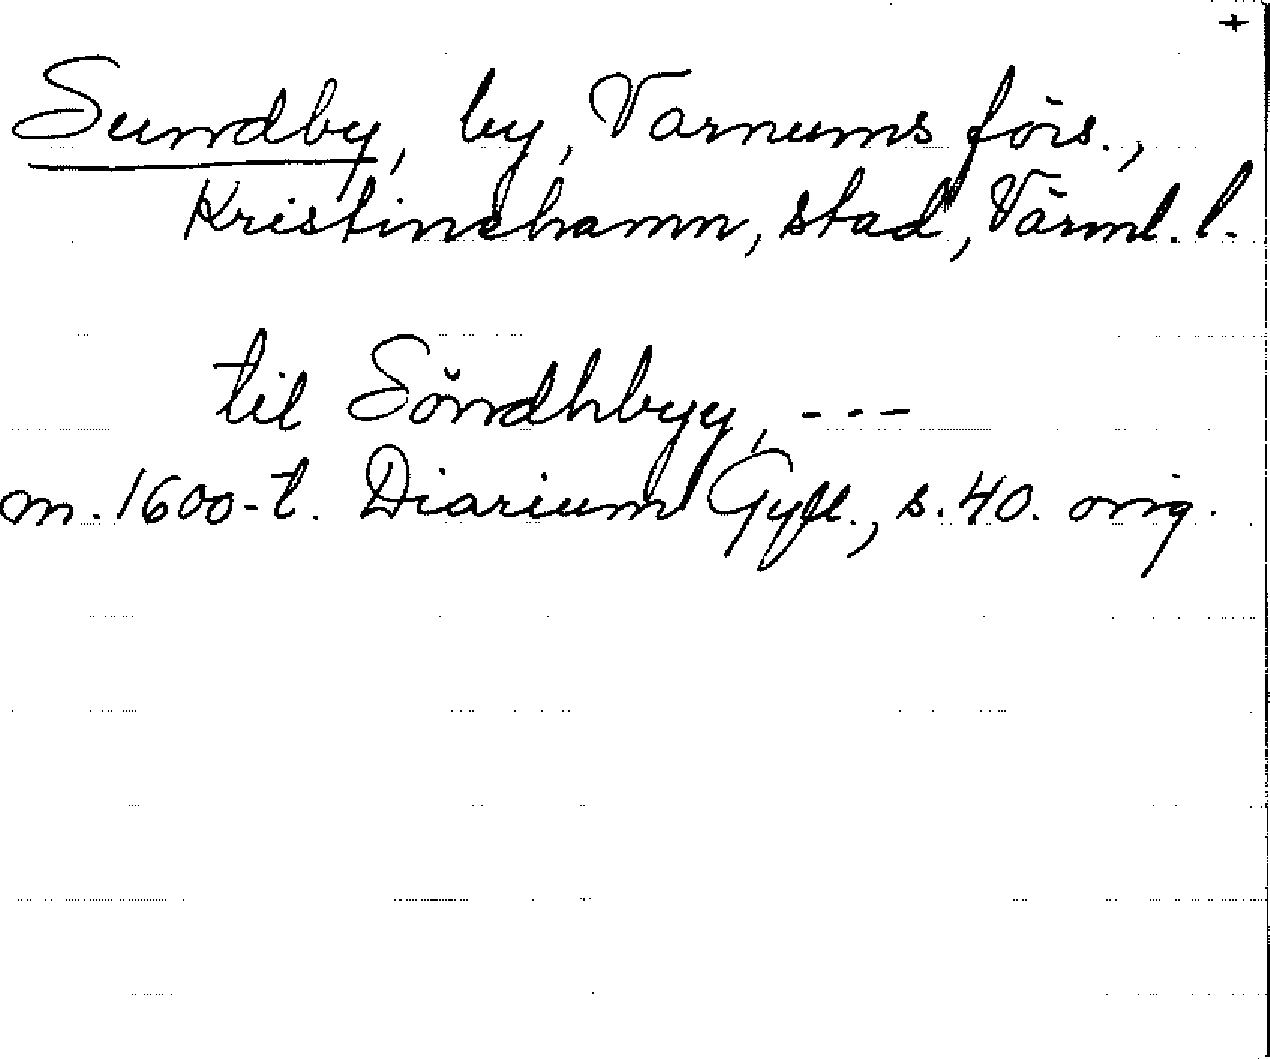 +
Sundby, by, Varnums förs.,
Kristinehamn, stad, Värml. l.
til Söndhbyy, ---
m. 1600-t. Diarium Gyll., s. 40. orig.